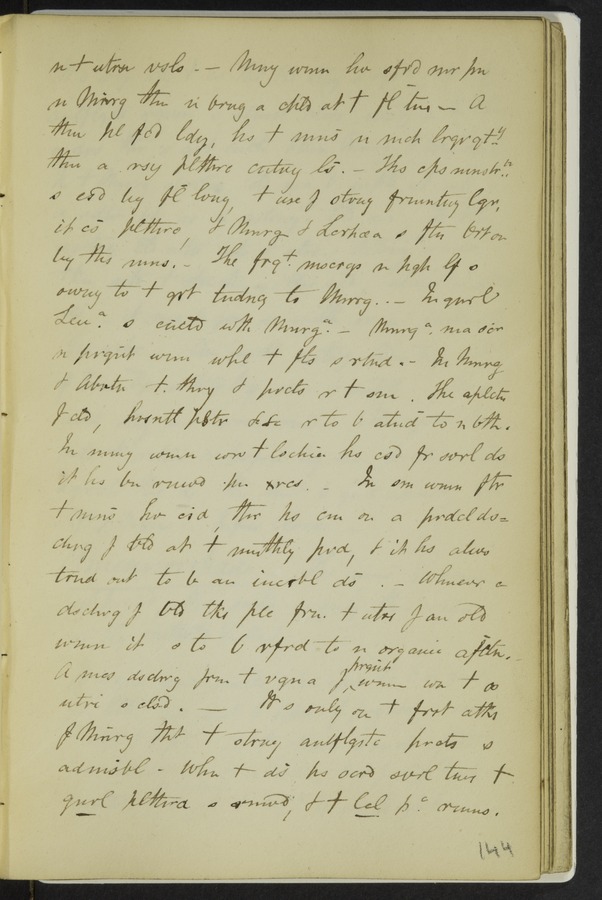 n + utrsn vsls. — Mny wmn hv sfrd mr pn
n Mnrrg thn n brng a chld at + fl tim — A
thn pl fcd ldy, hs + mns n mch lrgr qty
thn a rsy plthrc cntny ls. — Ths cps mnstrn
s csd by fl lvng, + use f strng frmntng lqr,
it cs plthra, & Mnrrg & Lcrhœa s ftn brt on
by ths mns. — The frqt mscrgs n hgh lf s
owng to + grt tndncy to Mnrrg. — In gnrl
Leua s cnctd wth Mnrga — Mnrrga ma ocr
n prgnt wmn whl + fts s rtnd. — In Mnrrg
& Abrtn + thry & prcts r + sm. The aplctn
f cld, hrsntl pstr &c &c r to b atnd to n bth.
In mny wmn wrs + lochia hs csd fr svrl ds
it hs bn rnwd pn xrcs. — In sm wmn ftr
+ mns hv csd, thr hs cm on a prdcl ds=
chrg f bld at + mnthly prd, & it hs alws
trnd out to b an incrbl ds. — Whnevr a
dschrg f bld tks plc frm + utrs f an old
wmn it s to b rfrd to n organic afctn.
A mcs dschrg frm + vgna f prgnt wmn whn + os
utri s clsd. — It s only on + frst atks
f Mnrrg tht + strng antflgstc prcts s
admsbl — Whn + ds hs ocrd svrl tms +
gnrl plthra s rmvd, & + lcl pc rmns.
144